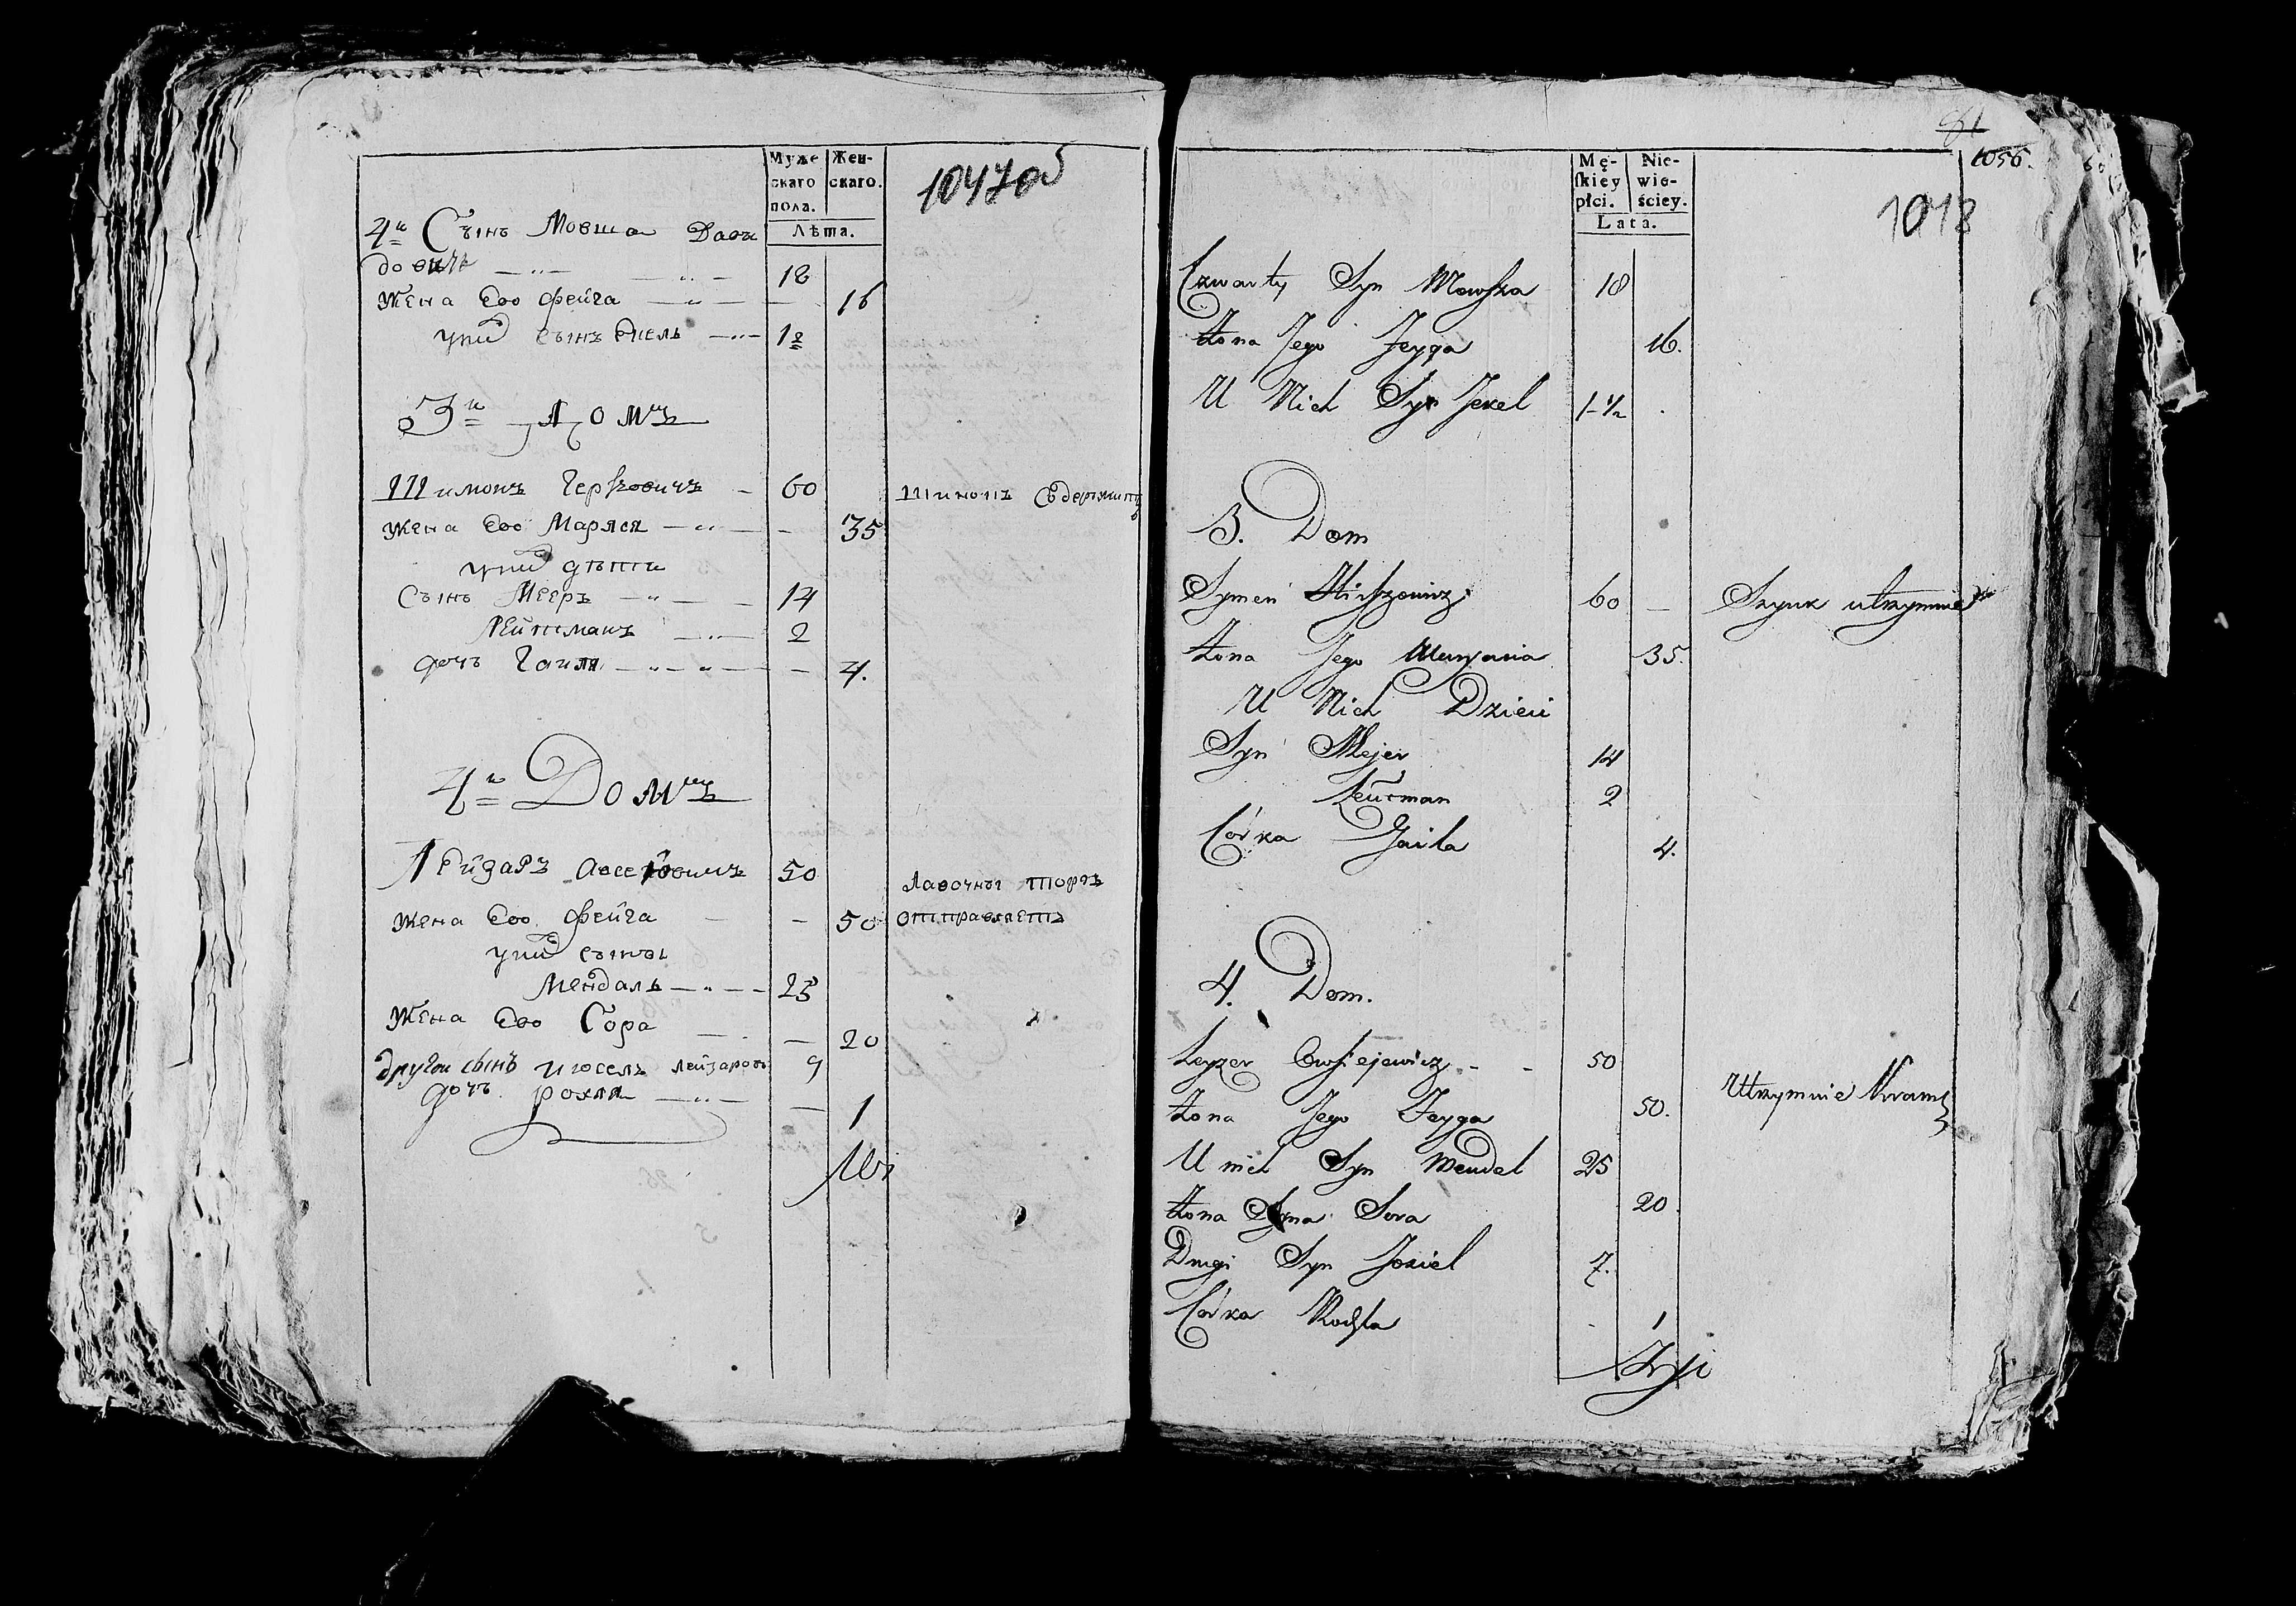 Муже
скаго
пола.
Жен-
скаго.
Лѣта.
1047об
4й Сынъ Мовша Дави
довичь 18
Жена Его Фейга 16
у них сынъ 1½
3й Домъ
Шимонъ Гершовичъ 60 Шинокъ Содержитъ
Жена Его Маряся 35
у них дѣти
Сынъ Мееръ 14
Лейтманъ 2
дочъ Гаиля 4.
4й Домъ
Лейзаръ 50 Лавочны торгъ
Жена Его Фейга 50 отправляетъ
у них сыны
Мендаль 25
Жена Его Сора 20
другои сынъ Иосель Лейзаров 9
дочъ рохля 1
81
1056.
Mę-
ſkiey
płci.
Nie-
wie-
ściey.
Lata.
1048
Czwarty Syn Mowſza 18
Żona Jego Feyga 16.
U Nich Syn 1-½
3. Dom
Symen Hirſzowicz 60 Szynk utrzymuie
Żona Jego 35.
U Nich Dzieci
Syn Mejer 14
Leutman 2
Córka Gaila 4.
4. Dom.
Leyzer Owſiejewicz 50
Żona Jego Feyga 50. Utrzymuie Kram
U nich Syn Mendel 25
Żona Syna Sora 20
Drugi Syn Joziel 7.
Córka Rochla 1